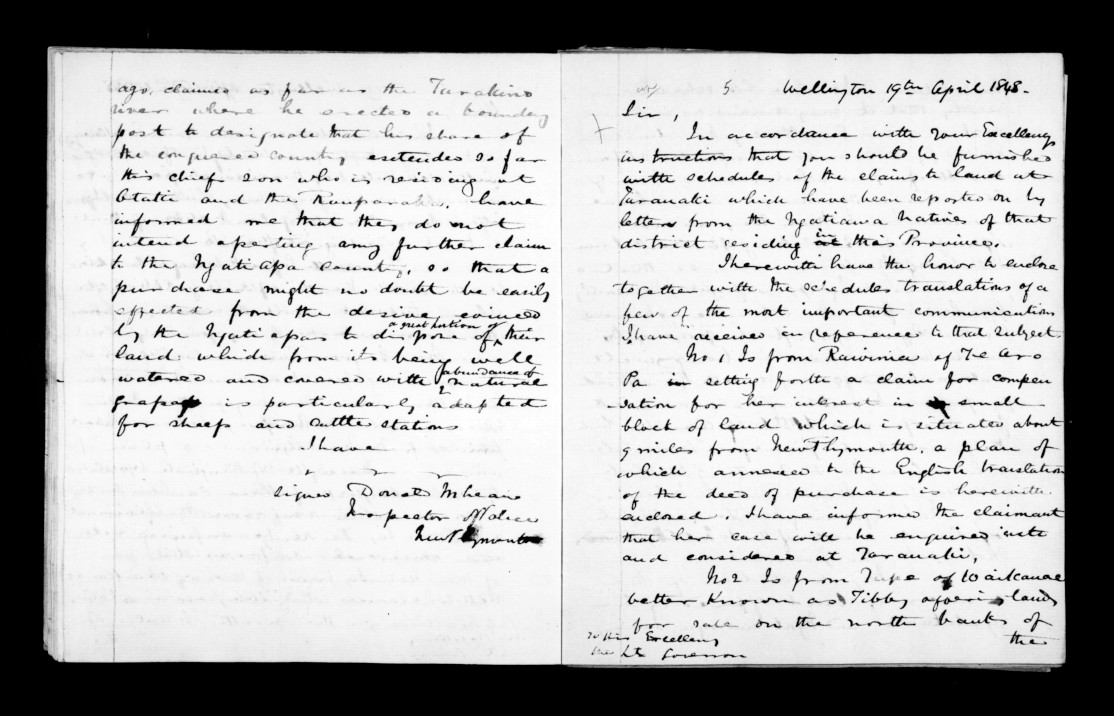 ago, claimed as far as the Turakino
river where he erected a boundary
post to designate that his share of
the conquered country extended so far
this chiefs son who is residing at
Otaki and the Rauparaha, have
informed me that they do not
intend asserting any further claim
to the Ngatiapa country, so that a
purchase might no doubt be easily
effected from the desire evinced
by the Ngatiapas to dispose of a great portion of their
land which from its being well
watered and covered with abundance of natural
grasses is particularly adapted
for sheep and cattle stations
I have
Signed Donald McLean
Inspector of Police
New Plymouth
5 Wellington 19th April 1848.
Sir,
In accordance with your Excellencys
instructions that you should be furnished
with schedules of the claims to land at
Taranaki which have been reported on by
letters from the Ngatiawa natives of that
district residing in this Province.
I herewith have the honor to enclose
together with the schedules translations of a
few of the most important communications
I have received in reference to that subject
No 1 Is from Rawinia of Te Aro
Pa in setting forth a claim for compen
-sation for her interest in a small
block of land which is situated about
9 miles from New Plymouth. a plan of
which annexed to the English translation
of the deed of purchase is herewith
enclosed. I have informed the claimant
that her case will be enquired into
and considered at Taranaki,
No 2 Is from Tupe of Waikanae
better known as Tibby offering lands
for sale on the north banks of
the
To His Excellency
the Lt Governor